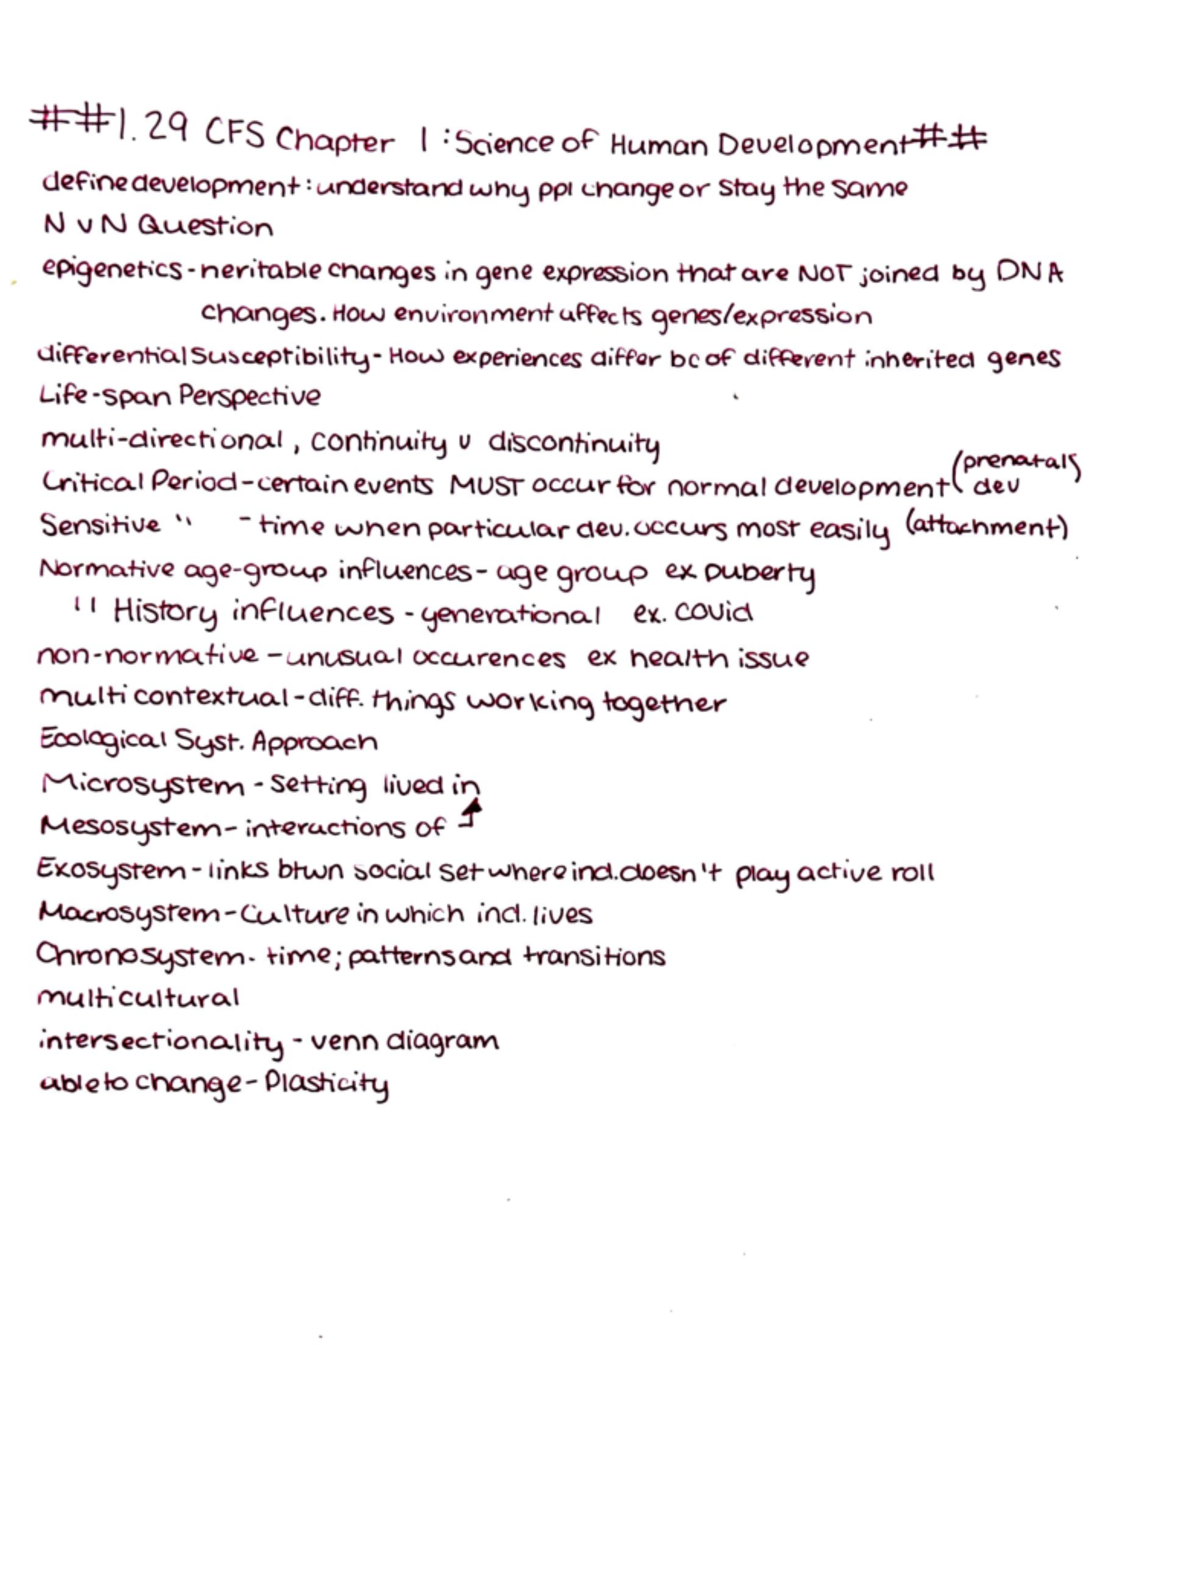 ##1.29 CFS Chapter 1: Science of Human Development##
define development: understand why ppl change or stay the same
N v N Question
epigenetics - heritable changes in gene expression that are NOT joined by DNA
changes. How environment affects genes/expression
differential Susceptibility - How experiences differ bc of different inherited genes
Life-span Perspective
multi-directional, continuity v discontinuity
Critical Period - certain events MUST occur for normal development (prenatal dev)
Sensitive " - time when particular dev. occurs most easily (attachment)
Normative age-group influences - age group ex puberty
" History influences - generational ex. covid
non-normative - unusual occurences ex health issue
multi contextual - diff. things working together
Ecological Syst. Approach
Microsystem - Setting lived in
Mesosystem - interactions of ↑
Exosystem - links btwn social set where ind. doesn't play active roll
Macrosystem - Culture in which ind. lives
Chronosystem - time; patterns and transitions
multicultural
intersectionality - venn diagram
able to change - Plasticity